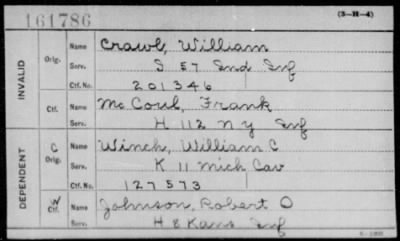 161786
(3-H-4)
INVALID
Orig.
Name Crawl, William
Serv. S 57 Ind Inf
Ctf. No. 201346
Ctf.
Name McCoul, Frank
Serv. H 112 N Y Inf
DEPENDENT
C
Orig.
Name Winch, William C
Serv. K 11 Mich Cav
Ctf. No. 127573
W
Ctf.
Name Johnson, Robert O
Serv. H 8 Kans Inf